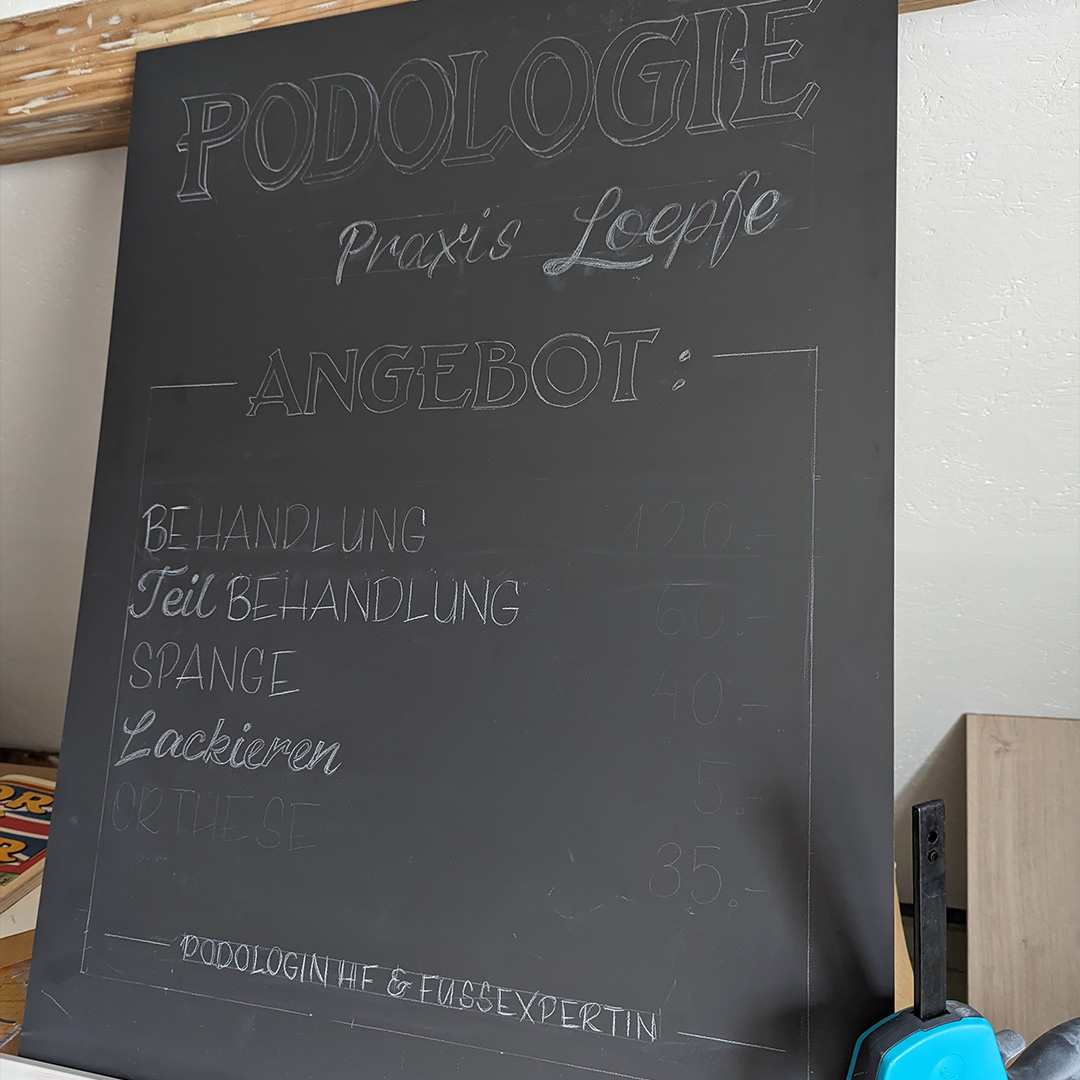 PODOLOGIE
Praxis Loepfe
ANGEBOT :
BEHANDLUNG 120.-
Teil BEHANDLUNG 60.-
SPANGE 40.-
Lackieren 5.-
ORTHESE 35.-
PODOLOGIN HF & FUSSEXPERTIN